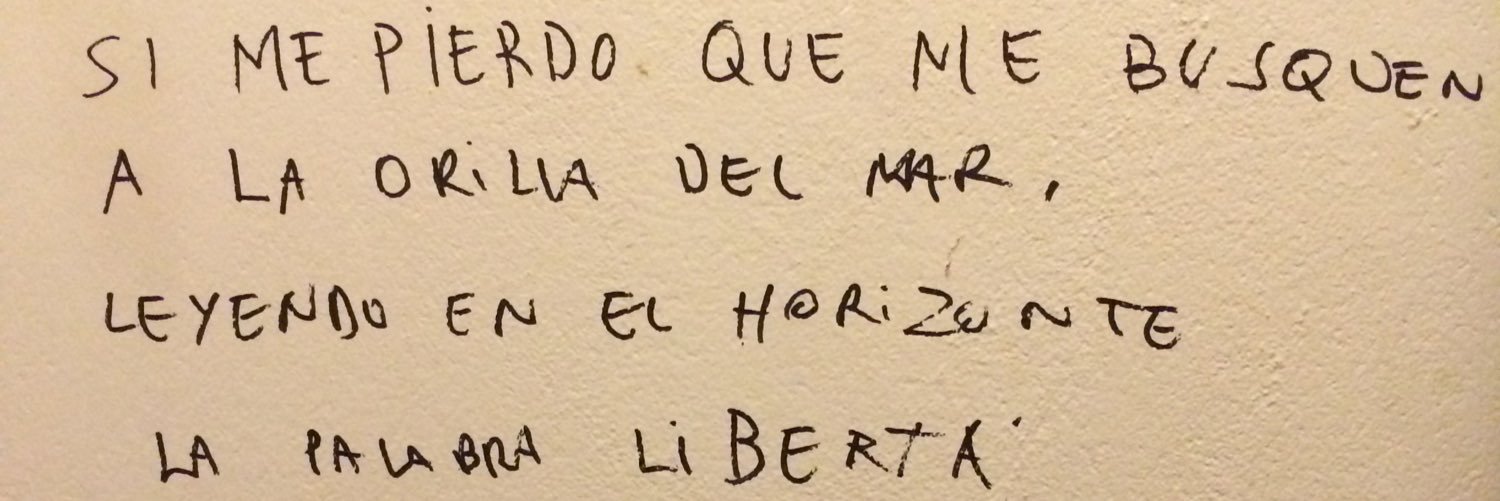 SI ME PIERDO QUE ME BUSQUEN
A LA ORILLA DEL MAR,
LEYENDO EN EL HORIZONTE
LA PALABRA LIBERTÁ